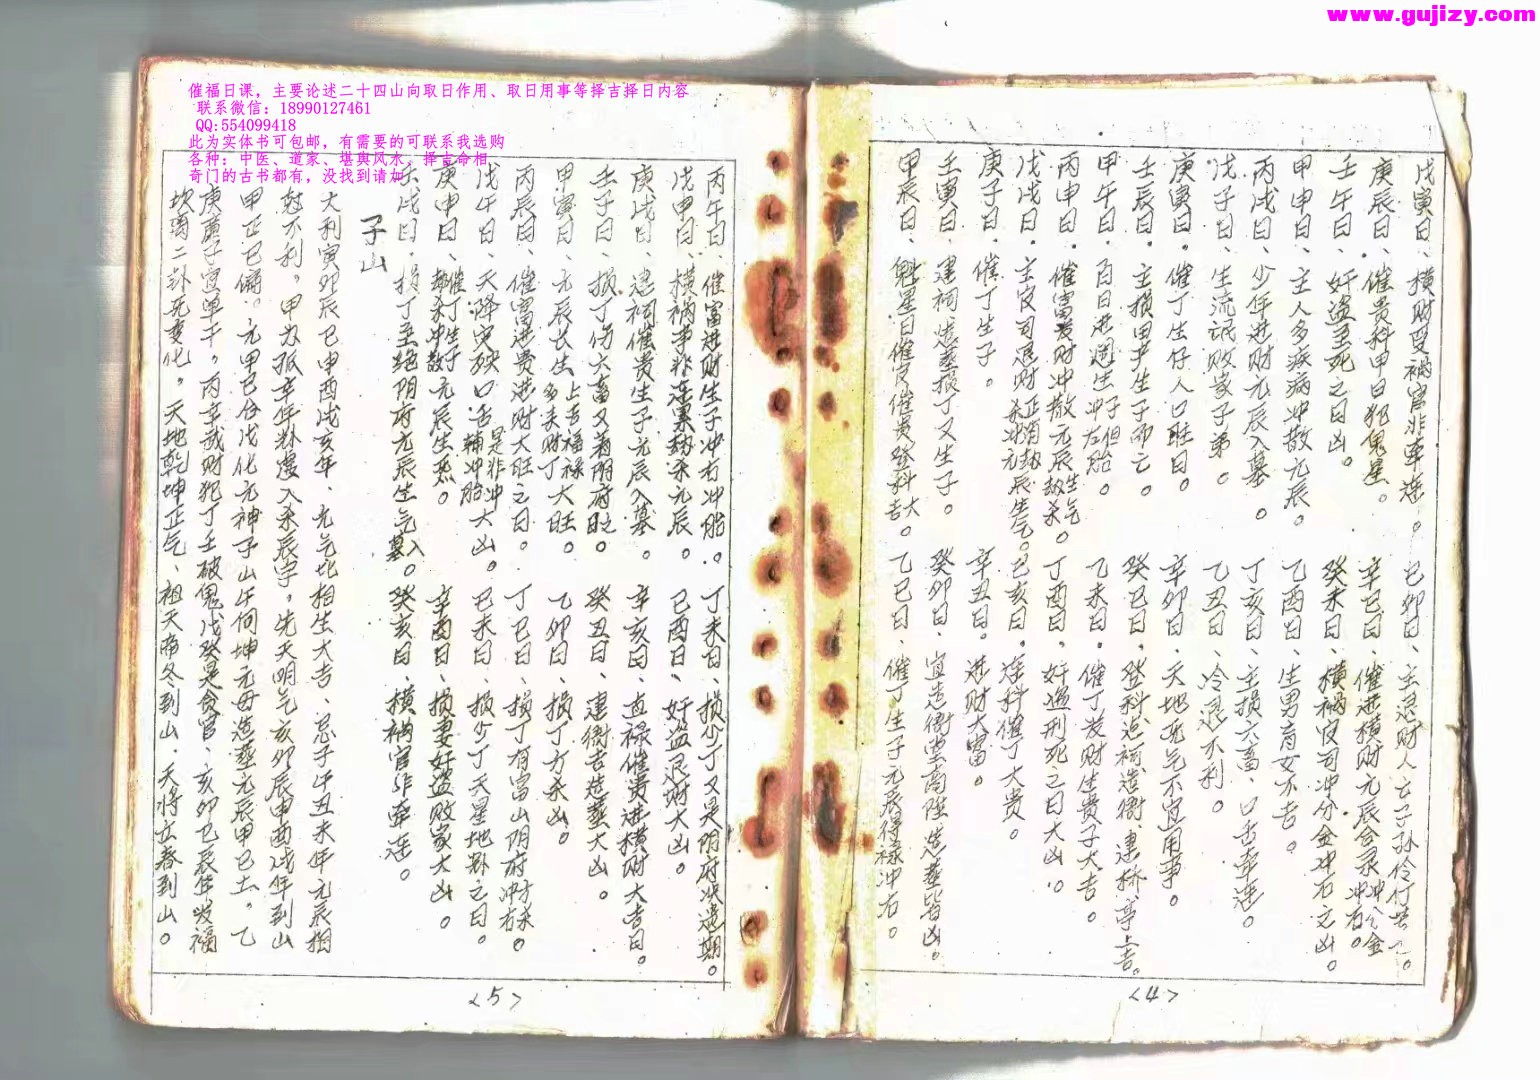 www.gujizy.com
催福日课，主要论述二十四山向取日作用、取日用事等择吉择日内容
联系微信：18990127461
QQ:554099418
此为实体书可包邮，有需要的可联系我选购
各种：中医、道家、堪舆风水、择吉命相
奇门的古书都有，没找到请加
戊寅日、横财望祸官非牵连。己卯日、主退财人亡子孙伶仃
庚辰日、催贵科甲日犯鬼星。辛巳日、催进横财元辰合禄冲分金冲右。
壬午日、奸盗至死之日凶。癸未日、横祸官司冲分金冲右之凶。
甲申日、主人多疾病冲散元辰。乙酉日、生男育女不吉。
丙戌日、少年进财元辰入墓。丁亥日、主损六畜、口舌牵连。
戊子日、生流氓败家子弟。乙丑日、冷退不利。
庚寅日、催丁生仔人口旺日。辛卯日、天地死气不宜用事。
壬辰日、主损甲尹生子而亡。癸巳日、登科造祠造衙、建桥亭上吉。
甲午日、百日进迴生子但冲左胎。乙未日、催丁发财生贵子大吉。
丙申日、催富发财冲散元辰生气劫杀。丁酉日、奸盗刑死之日大凶。
戊戌日、主官司退财正消劫杀冲元辰生气。己亥日、连科催丁大贵。
庚子日、催丁生子。辛丑日、进财大富。
壬寅日、建祠造葬损丁又生子。癸卯日、宜造衙堂高陞造葬皆凶。
甲辰日、魁星日催官催贵登科大吉。乙巳日、催丁生子元辰得禄冲右。
<4>
丙午日、催富进财生子冲右冲胎。丁未日、损少丁又是阴府退期。
戊申日、横祸事非连累劫杀元辰。己酉日、奸盗退财大凶。
庚戌日、建祠催贵生子元辰入墓。辛亥日、进禄催贵进横财大吉日。
壬子日、损丁伤六畜又为阴府旺。癸丑日、建衙吉造葬大凶。
甲寅日、元辰长生上吉福禄多来财丁大旺。乙卯日、损丁方杀凶。
丙辰日、催富进贵进财大旺之日。丁巳日、损丁有富山阴府方杀冲右。
戊午日、天降灾殃口舌是非冲辅冲胎大凶。己未日、损少丁天星地卦之日。
庚申日、催丁生子劫杀冲散元辰生炁。辛酉日、损妻奸盗败家大凶。
壬戌日、损丁至绝阴府元辰生气入墓。癸亥日、横祸官非牵连。
子山
大利寅卯辰巳申酉戌亥年、元气比相生大吉、忌子午丑未年元辰相
怼不利。甲为孤辛年卦煖入杀辰字。先天明气亥卯辰申酉戌年到山
甲正己偏。元甲巳合戊化元神子山午向坤元母造葬元辰甲巳土。乙
庚庚子官单干。丙辛贰财犯丁壬破鬼戊癸是食官、亥卯巳辰年发福
坎离二卦死变化。天地乾坤正气、祖天帝冬到山、天将立春到山。
<5>